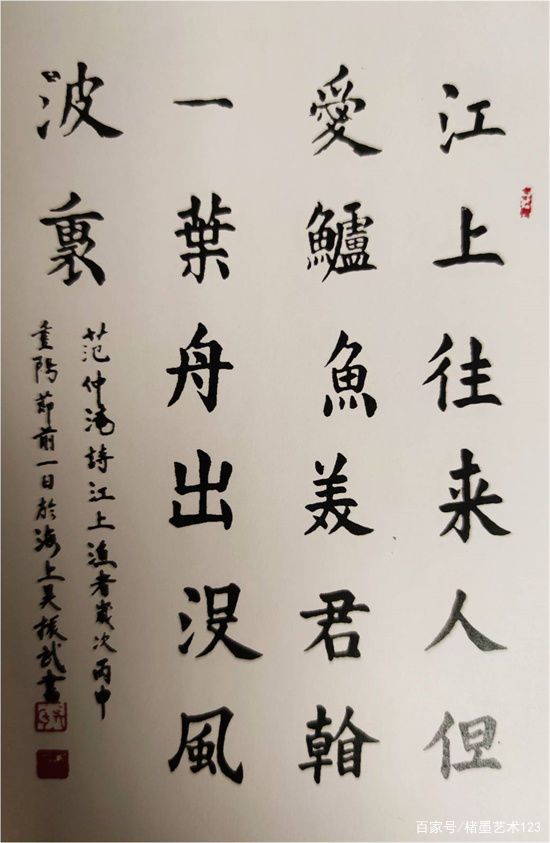 江上往来人但
愛鱸魚美君
一葉舟出没風
波裏
范仲淹詩江上漁者歲次丙申
重陽節前一日於海上吴振武書
百家号/楮墨艺术123